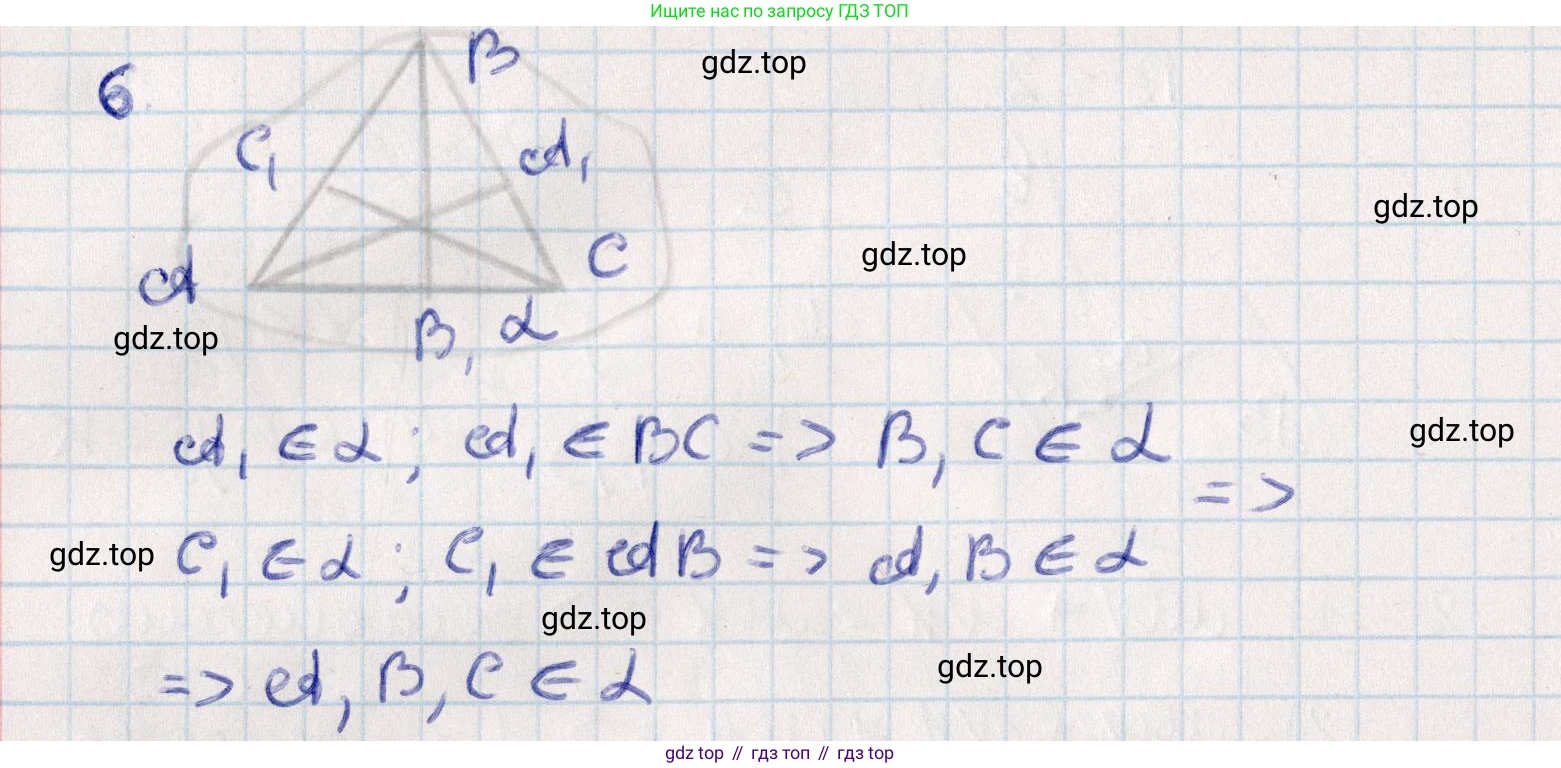 Ищите нас по запросу ГДЗ ТОП
gdz.top
6.
B
C₁
A₁
gdz.top
gdz.top
C
A
B₁
α
gdz.top
A₁ ∈ α; A₁ ∈ BC => B, C ∈ α
gdz.top
=>
gdz.top
C₁ ∈ α; C₁ ∈ AB => A, B ∈ α
gdz.top
gdz.top
=> A, B, C ∈ α
gdz top // гдз топ // гдз top